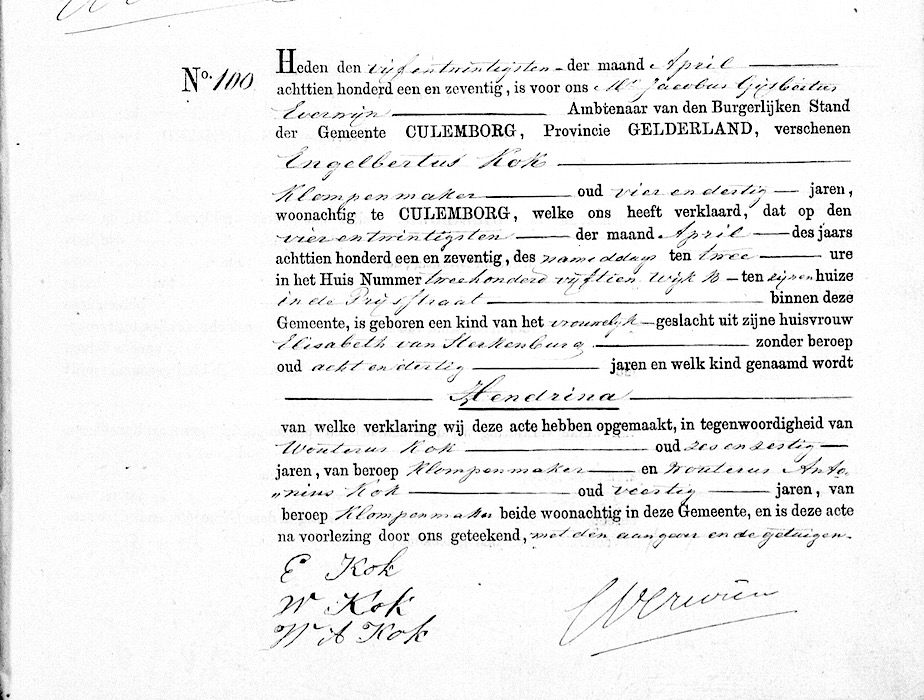 No. 100
Heden den vijfentwintigsten der maand April
achttien honderd een en zeventig, is voor ons Mr. Jacobus Gijsbertus
Everwijn Ambtenaar van den Burgerlijken Stand
der Gemeente CULEMBORG, Provincie GELDERLAND, verschenen
Engelbertus Kok
Klompenmaker oud vier en dertig jaren,
woonachtig te CULEMBORG, welke ons heeft verklaard, dat op den
vier entwintigsten der maand April des jaars
achttien honderd een en zeventig, des nameddags ten twee ure
in het Huis Nummer tweehonderd vijftien Wijk B ten zijnen huize
in de Prijsstraat binnen deze
Gemeente, is geboren een kind van het vrouwelijk geslacht uit zijne huisvrouw
Elisabeth van Sterkenburg zonder beroep
oud acht en dertig jaren en welk kind genaamd wordt
Hendrina
van welke verklaring wij deze acte hebben opgemaakt, in tegenwoordigheid van
Wouterus Kok oud zes en zestig
jaren, van beroep Klompenmaker en Wouterus Anto
„nius Kok oud veertig jaren, van
beroep Klompenmaker beide woonachtig in deze Gemeente, en is deze acte
na voorlezing door ons geteekend, met den aangever en de getuigen.
E Kok
W Kok
W A Kok
Everwijn